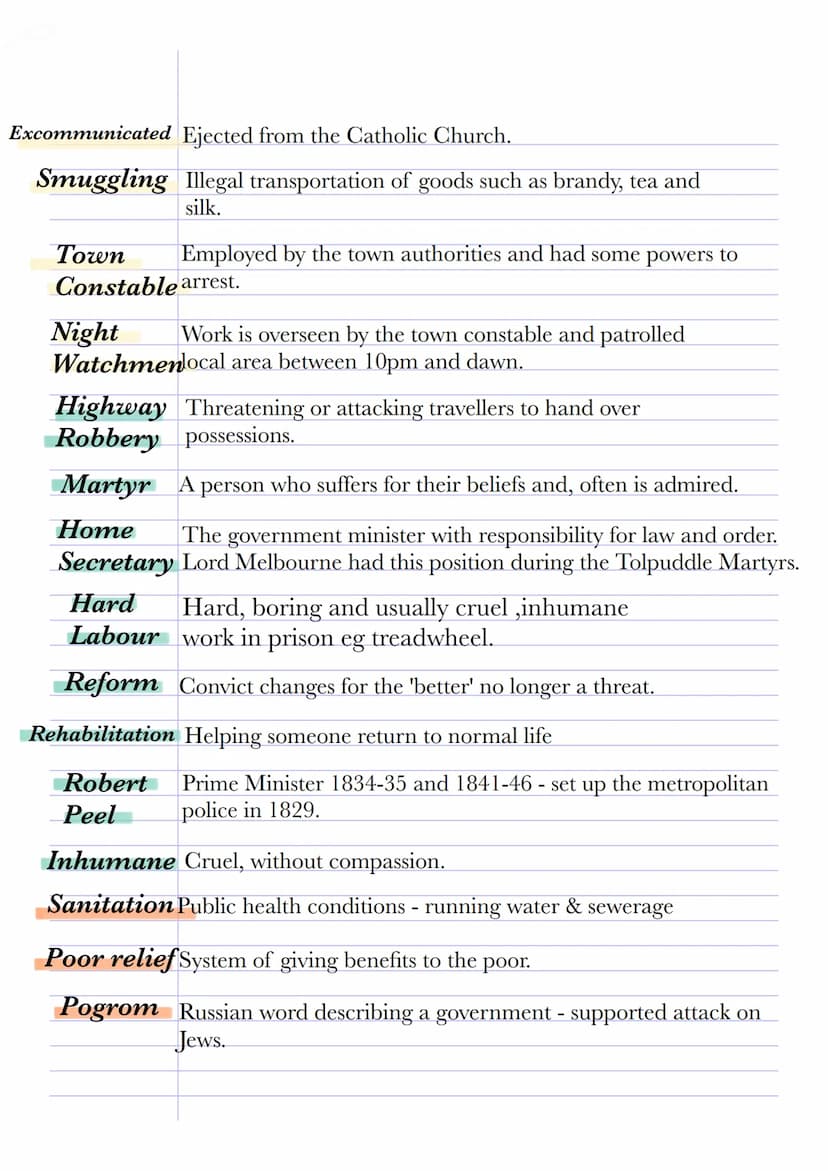 Excommunicated Ejected from the Catholic Church.
Smuggling Illegal transportation of goods such as brandy, tea and
silk.
Town Employed by the town authorities and had some powers to
Constable arrest.
Night Work is overseen by the town constable and patrolled
Watchmen local area between 10pm and dawn.
Highway Threatening or attacking travellers to hand over
Robbery possessions.
Martyr A person who suffers for their beliefs and, often is admired.
Home The government minister with responsibility for law and order.
Secretary Lord Melbourne had this position during the Tolpuddle Martyrs.
Hard Hard, boring and usually cruel ,inhumane
Labour work in prison eg treadwheel.
Reform Convict changes for the 'better' no longer a threat.
Rehabilitation Helping someone return to normal life
Robert Prime Minister 1834-35 and 1841-46 - set up the metropolitan
Peel police in 1829.
Inhumane Cruel, without compassion.
Sanitation Public health conditions - running water & sewerage
Poor relief System of giving benefits to the poor.
Pogrom Russian word describing a government - supported attack on
Jews.